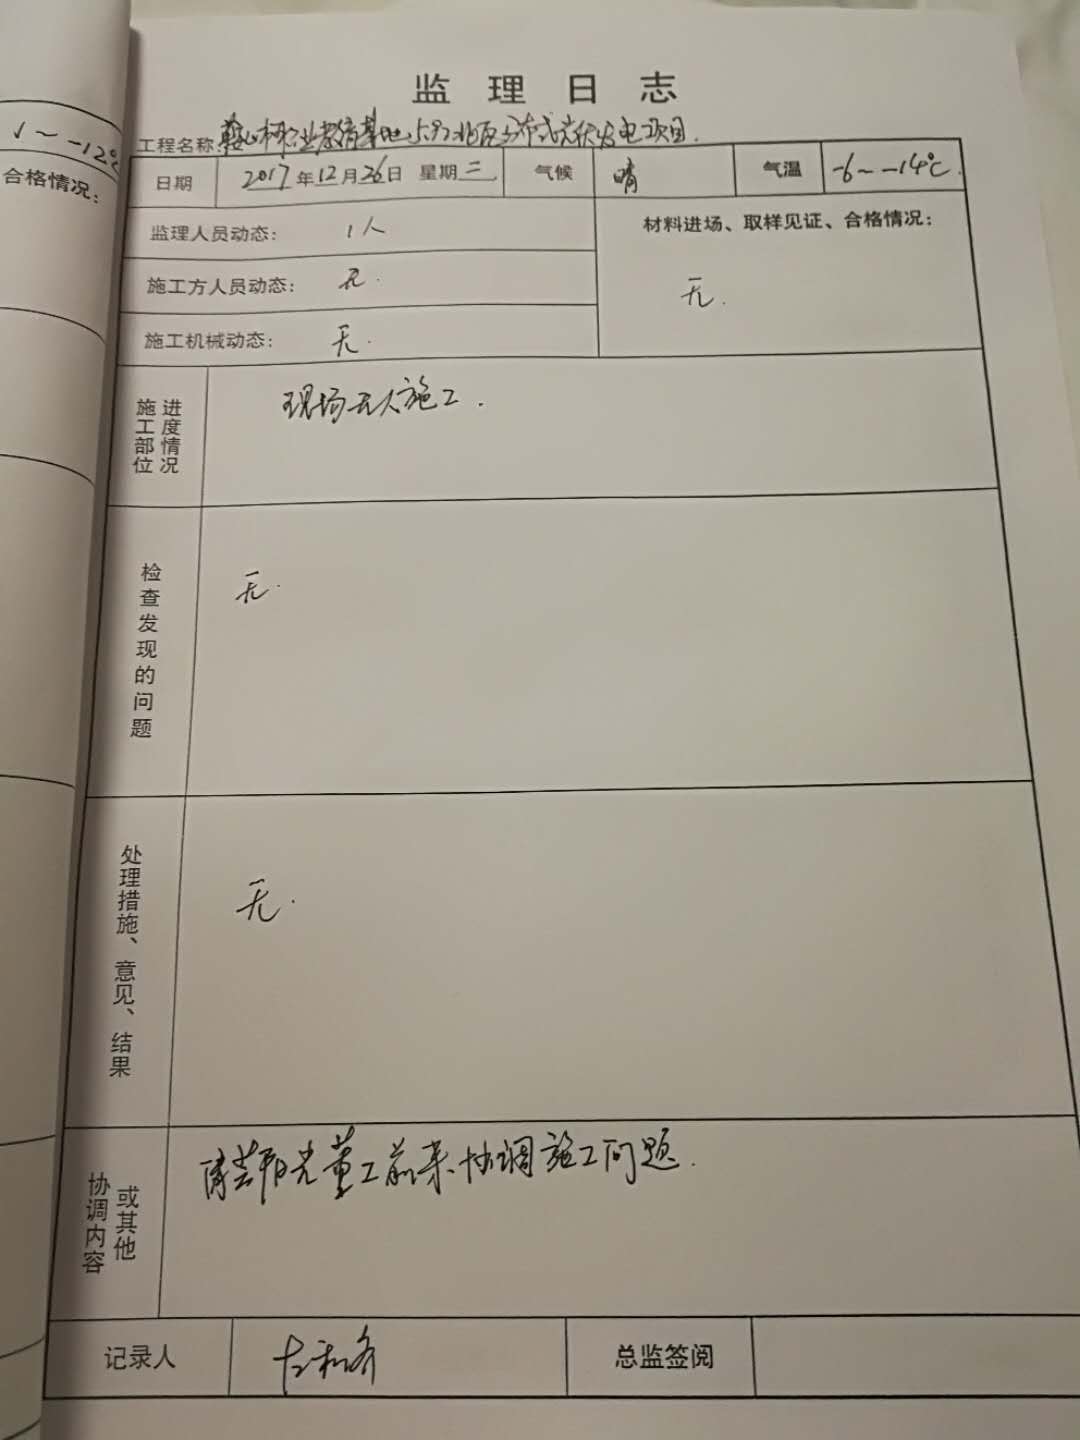 监理日志
工程名称: 业教育基地5.9 分布式光伏发电项目.
日期 2017年12月26日 星期二 气候 晴 气温 -6~-14℃.
监理人员动态: 1人
材料进场、取样见证、合格情况:
无.
施工方人员动态: 无.
施工机械动态: 无.
施工部位 进度情况
现场无人施工.
检查发现的问题
无.
处理措施、意见、结果
无.
协调内容 或其他
阳光董工前来协调施工问题.
记录人
总监签阅
~-12℃
合格情况: